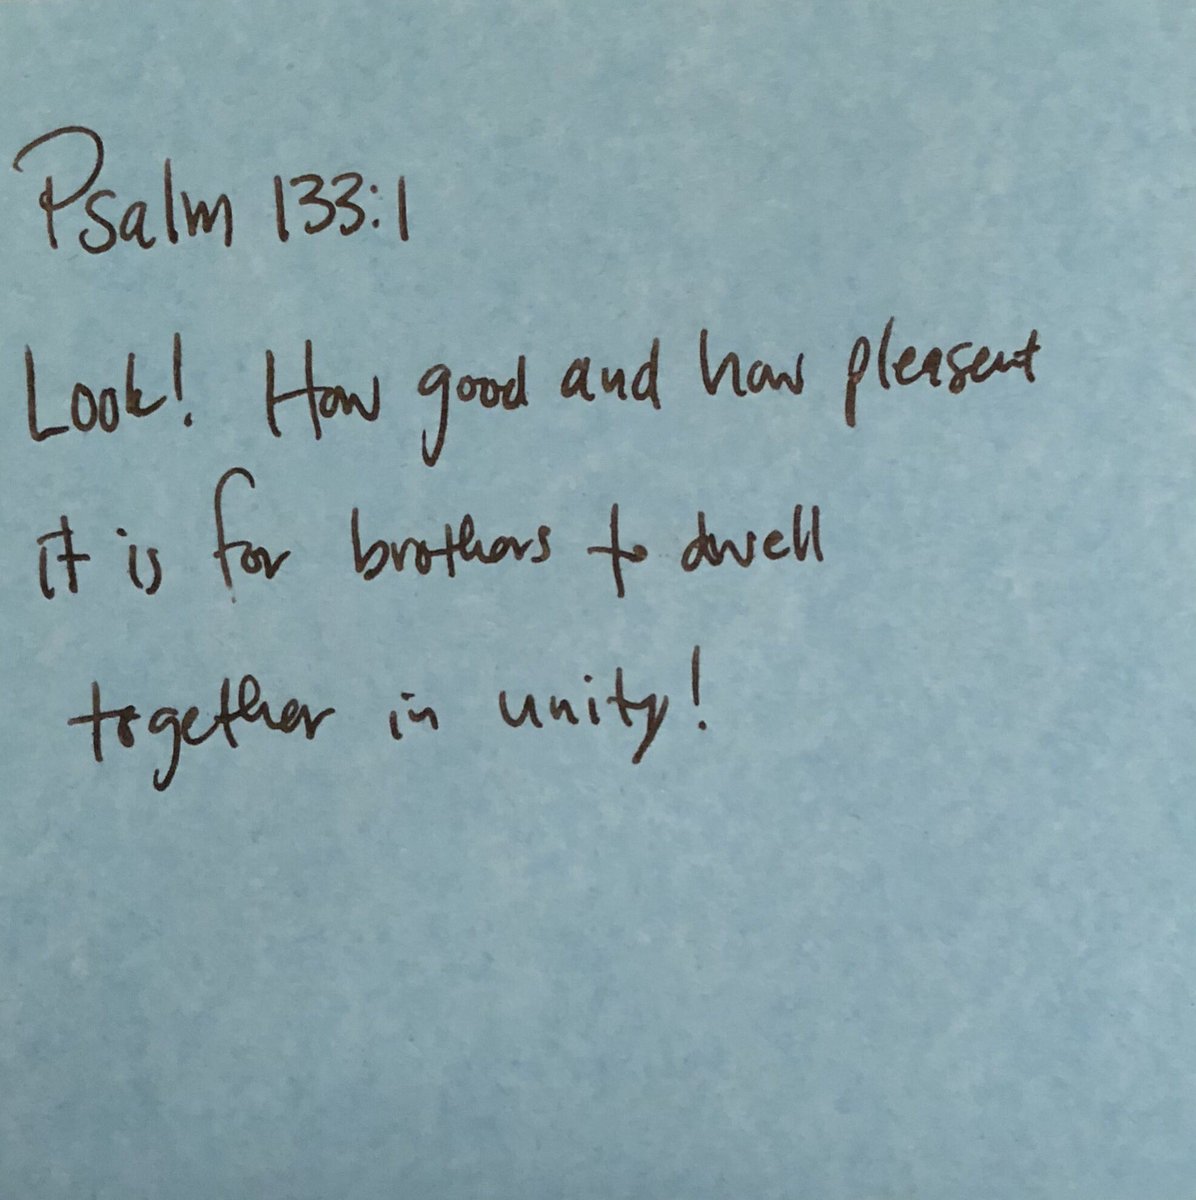 Psalm 133:1
Look! How good and how pleasent
it is for brothers to dwell
together in unity!